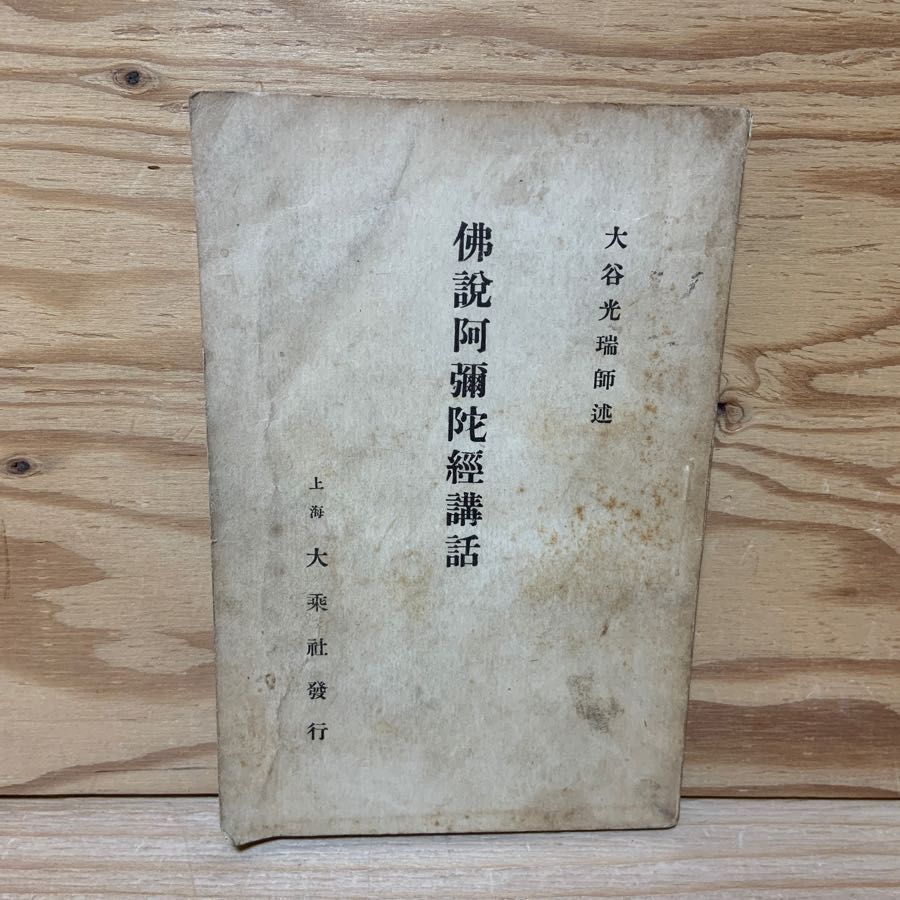 大谷光瑞師述
佛說阿彌陀經講話
上海 大乘社發行